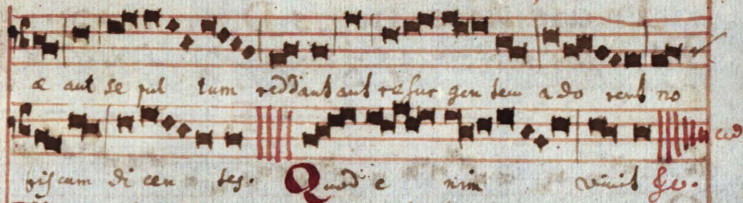 æ aut se pul tum reddant aut resur gen tem a do rent no
bis cum di cen tes. Quod e nim vivit